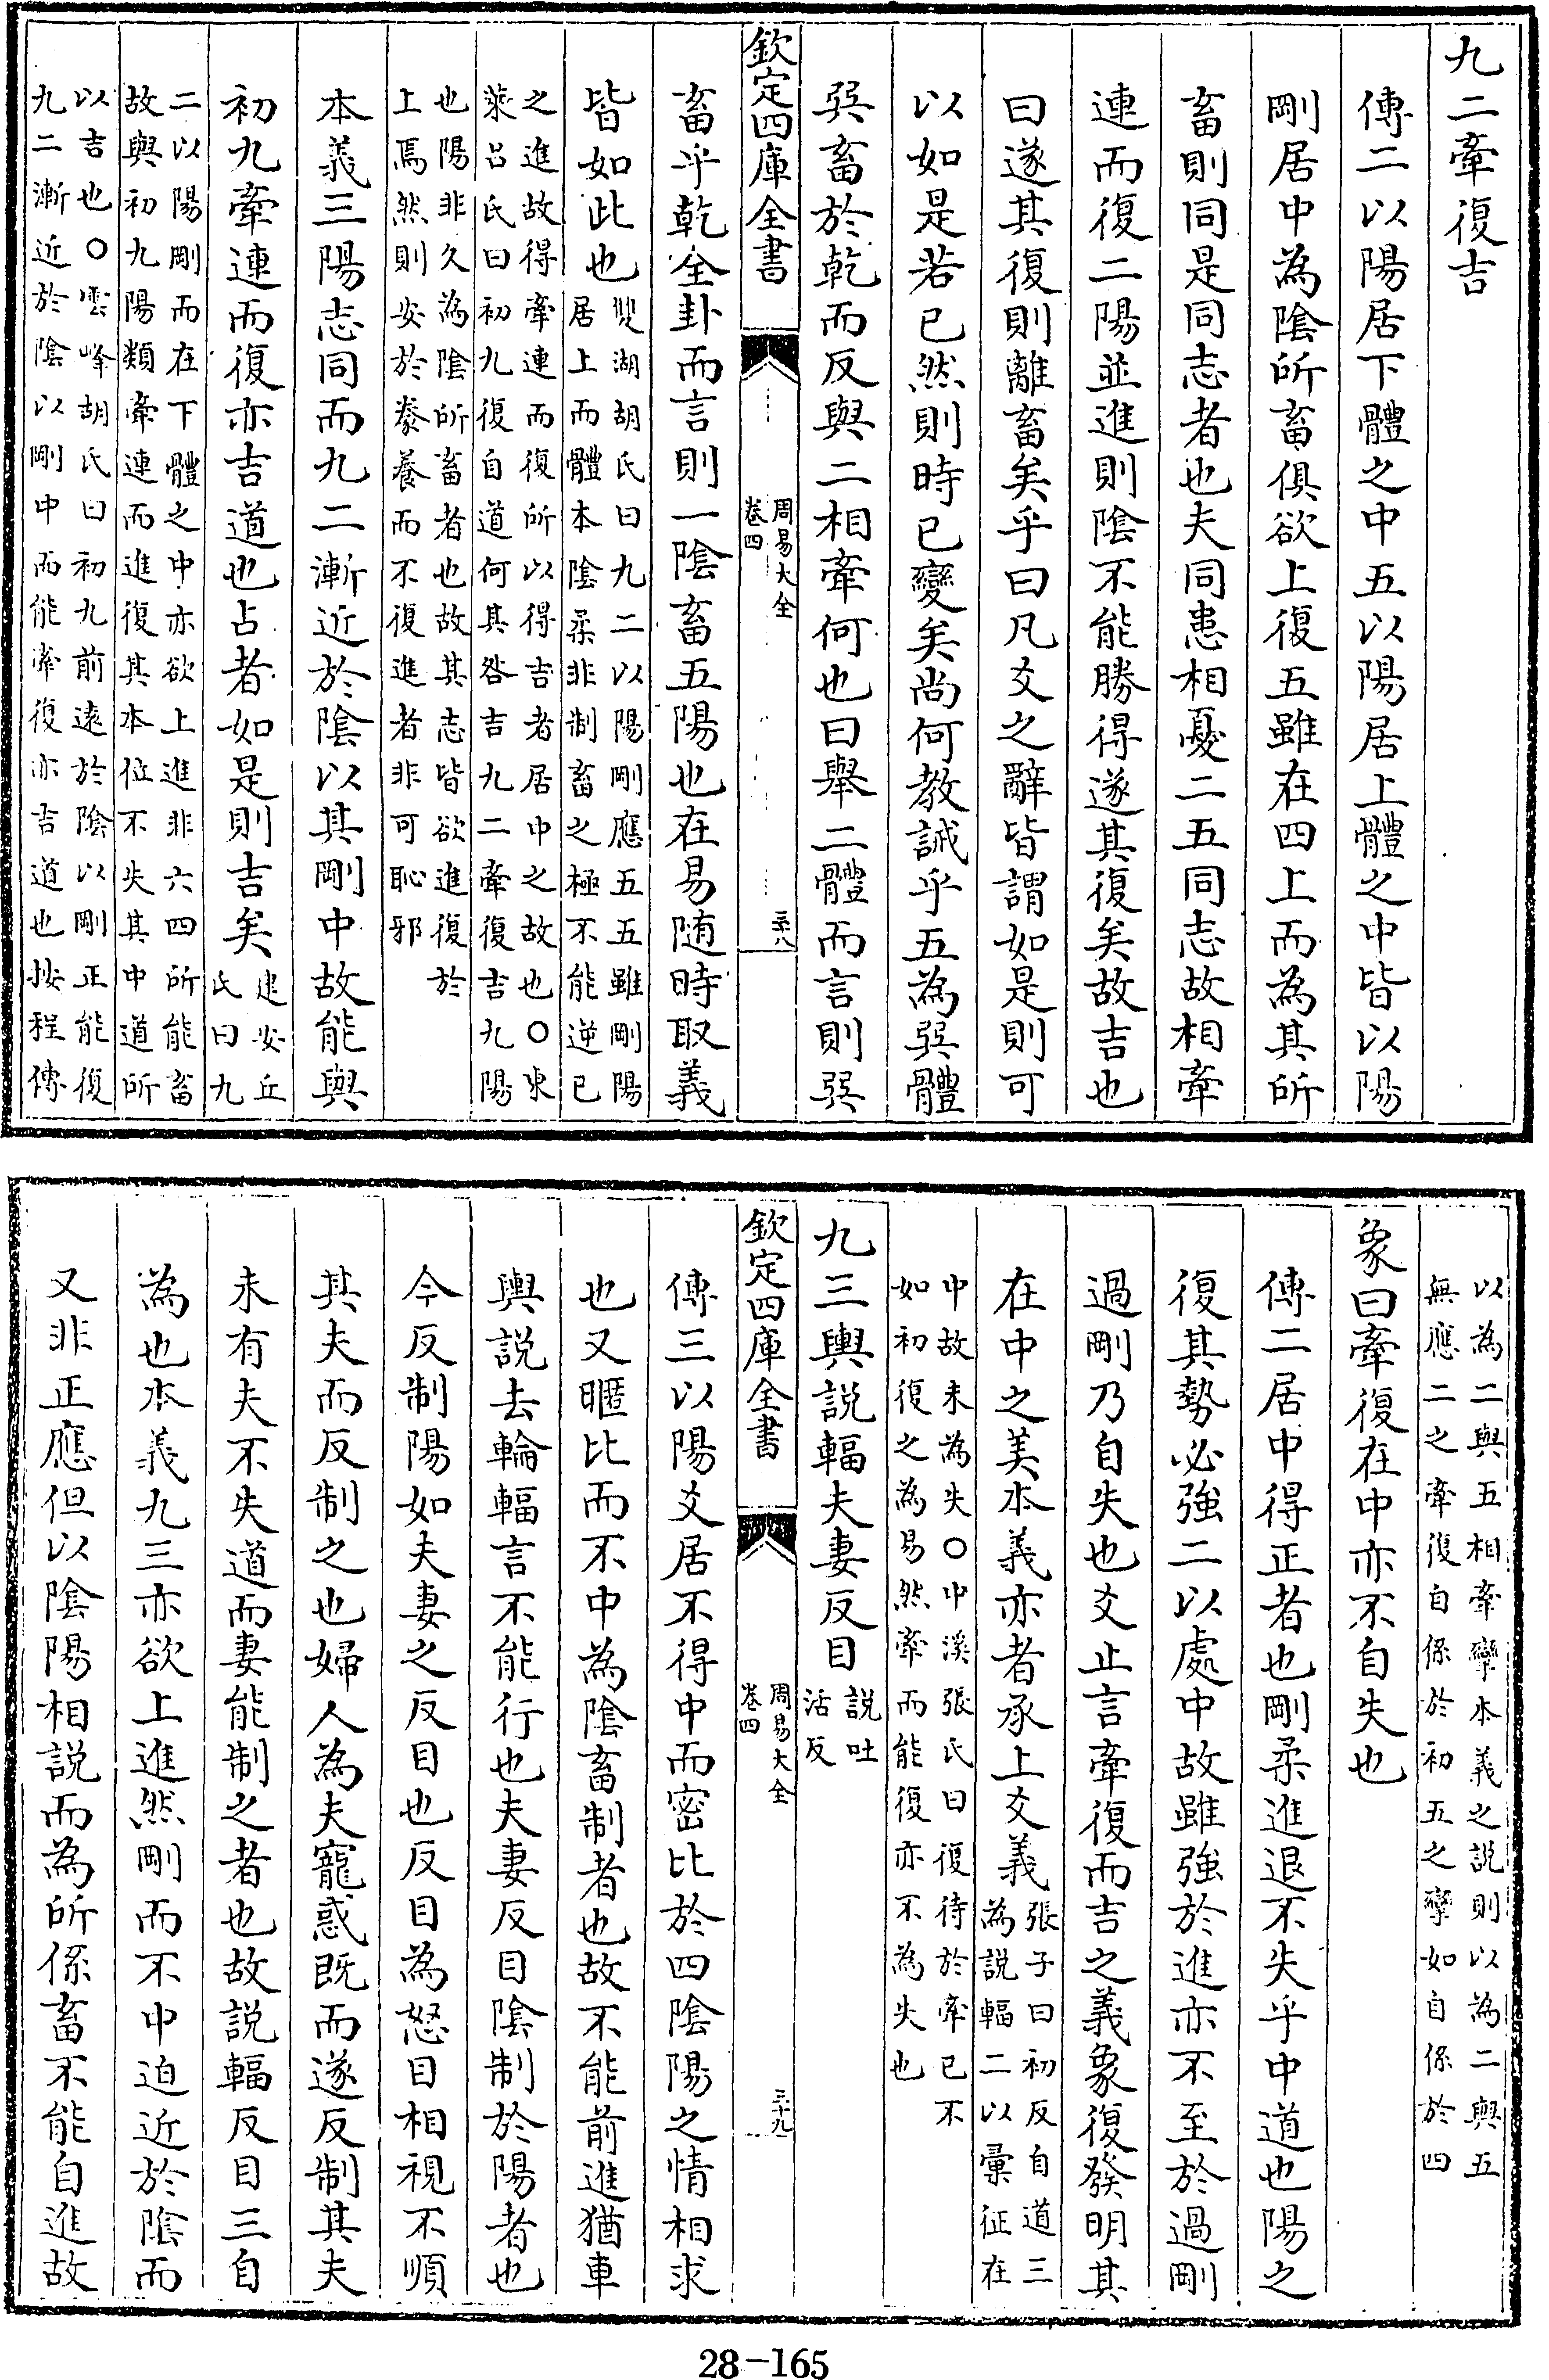 九二牽復吉
傳二以陽居下體之中五以陽居上體之中皆以陽
剛居中為陰所畜俱欲上復五雖在四上而為其所
畜則同是同志者也夫同患相憂二五同志故相牽
連而復二陽並進則陰不能勝得遂其復矣故吉也
曰遂其復則離畜矣乎曰凡爻之辭皆謂如是則可
以如是若已然則時已變矣尚何教誡乎五為巽體
巽畜於乾而反與二相牽何也曰舉二體而言則巽
欽定四庫全書
周易大全
卷四
三十八
畜乎乾全卦而言則一陰畜五陽也在易随時取義
皆如此也
雙湖胡氏曰九二以陽剛應五五雖剛陽
居上而體本陰柔非制畜之極不能逆已
之進故得牽連而復所以得吉者居中之故也○東
萊呂氏曰初九復自道何其咎吉九二牽復吉九陽
也陽非久為陰所畜者也故其志皆欲進復於
上焉然則安於豢養而不復進者非可恥邪
本義三陽志同而九二漸近於陰以其剛中故能與
初九牽連而復亦吉道也占者如是則吉矣
建安丘
氏曰九
二以陽剛而在下體之中亦欲上進非六四所能畜
故與初九陽類牽連而進復其本位不失其中道所
以吉也○雲峰胡氏曰初九前遠於陰以剛正能復
九二漸近於陰以剛中而能牽復亦吉道也按程傳
以為二與五相牽攣本義之説則以為二與五
無應二之牽復自係於初五之攣如自係於四
象曰牽復在中亦不自失也
傳二居中得正者也剛柔進退不失乎中道也陽之
復其勢必強二以處中故雖強於進亦不至於過剛
過剛乃自失也爻止言牽復而吉之義象復發明其
在中之美本義亦者承上爻義
張子曰初反自道三
為説輻二以彙征在
中故未為失○中溪張氏曰復待於牽已不
如初復之為易然牽而能復亦不為失也
九三輿説輻夫妻反目
説吐
活反
欽定四庫全書
周易大全
卷四
三十九
傳三以陽爻居不得中而密比於四陰陽之情相求
也又暱比而不中為陰畜制者也故不能前進猶車
輿説去輪輻言不能行也夫妻反目陰制於陽者也
今反制陽如夫妻之反目也反目為怒目相視不順
其夫而反制之也婦人為夫寵惑既而遂反制其夫
未有夫不失道而妻能制之者也故説輻反目三自
為也本義九三亦欲上進然剛而不中迫近於陰而
又非正應但以陰陽相説而為所係畜不能自進故
28-165